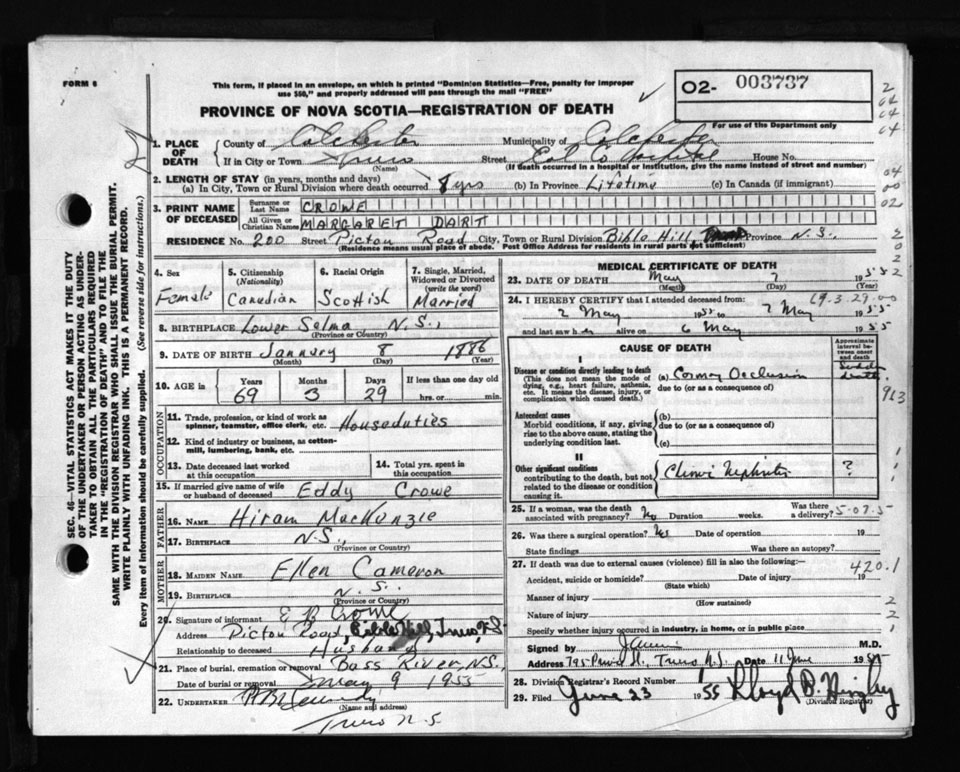 FORM 6
This form, if placed in an envelope, on which is printed "Dominion Statistics—Free, penalty for improper
use $50," and properly addressed will pass through the mail "FREE"
02- 003737
PROVINCE OF NOVA SCOTIA—REGISTRATION OF DEATH
For use of the Department only
1. PLACE OF DEATH
County of Colchester Municipality of Colchester
If in City or Town Truro Street Col Co Hospital House No.
(Name) (If death occurred in a hospital or institution, give the name instead of street and number)
2. LENGTH OF STAY (in years, months and days)
(a) In City, Town or Rural Division where death occurred 8 yrs (b) In Province Lifetime (c) In Canada (if immigrant)
3. PRINT NAME OF DECEASED
Surname or Last Name CROWE
All Given or Christian Names MARGARET DART
RESIDENCE No. 200 Street Picton Road City, Town or Rural Division Bible Hill Province N.S.,
(Residence means usual place of abode. Post Office Address for residents in rural parts not sufficient)
4. Sex Female
5. Citizenship (Nationality) Canadian
6. Racial Origin Scottish
7. Single, Married, Widowed or Divorced (write the word) Married
8. BIRTHPLACE Lower Selma N.S.,
(Province or Country)
9. DATE OF BIRTH January 8 1886
(Month) (Day) (Year)
10. AGE in Years 69 Months 3 Days 29 If less than one day old hrs. or min.
OCCUPATION
11. Trade, profession, or kind of work as spinner, teamster, office clerk, etc. Houseduties
12. Kind of industry or business, as cotton-mill, lumbering, bank, etc.
13. Date deceased last worked at this occupation
14. Total yrs. spent in this occupation
15. If married give name of wife or husband of deceased Eddy Crowe
FATHER
16. NAME Hiram MacKenzie
17. BIRTHPLACE N.S.,
(Province or Country)
MOTHER
18. MAIDEN NAME Ellen Cameron
19. BIRTHPLACE N.S.
(Province or Country)
20. Signature of informant E B Crowe
Address Picton Road, Bible Hill, Truro, N.S.
Relationship to deceased Husband
21. Place of burial, cremation or removal Bass River, N.S.,
Date of burial or removal May 9 1955
22. UNDERTAKER
(Name and address)
Truro N.S
MEDICAL CERTIFICATE OF DEATH
23. DATE OF DEATH May 7 1955
(Month) (Day) (Year)
24. I HEREBY CERTIFY that I attended deceased from:
2 May 1955 to 7 May 1955
and last saw h er alive on 6 May 1955
CAUSE OF DEATH
Approximate interval between onset and death
I
Disease or condition directly leading to death
(This does not mean the mode of dying, e.g., heart failure, asthenia, etc. It means the disease, injury, or complication which caused death.)
(a) Coronary Occlusion
due to (or as a consequence of)
Sudden death
Antecedent causes
Morbid conditions, if any, giving rise to the above cause, stating the underlying condition last.
(b)
due to (or as a consequence of)
(c)
II
Other significant conditions contributing to the death, but not related to the disease or condition causing it.
Chronic Nephritis ?
25. If a woman, was the death associated with pregnancy? No Duration weeks. Was there a delivery?
5-07.5
26. Was there a surgical operation? Date of operation 19
State findings Was there an autopsy?
27. If death was due to external causes (violence) fill in also the following:—
420.1
Accident, suicide or homicide? Date of injury 19
(State which)
Manner of injury
(How sustained)
Nature of injury
Specify whether injury occurred in industry, in home, or in public place
Signed by M.D.
Address 795 Prince St., Truro N.S. Date 11 June 1955
28. Division Registrar's Record Number
29. Filed June 23 1955 Lloyd B. Hingley
(Division Registrar)
SEC. 46—VITAL STATISTICS ACT MAKES IT THE DUTY
OF THE UNDERTAKER OR PERSON ACTING AS UNDER-
TAKER TO OBTAIN ALL THE PARTICULARS REQUIRED
IN THE "REGISTRATION OF DEATH" AND TO FILE THE
SAME WITH THE DIVISION REGISTRAR WHO SHALL ISSUE THE BURIAL PERMIT.
WRITE PLAINLY WITH UNFADING INK. THIS IS A PERMANENT RECORD.
Every item of information should be carefully supplied. (See reverse side for instructions.)